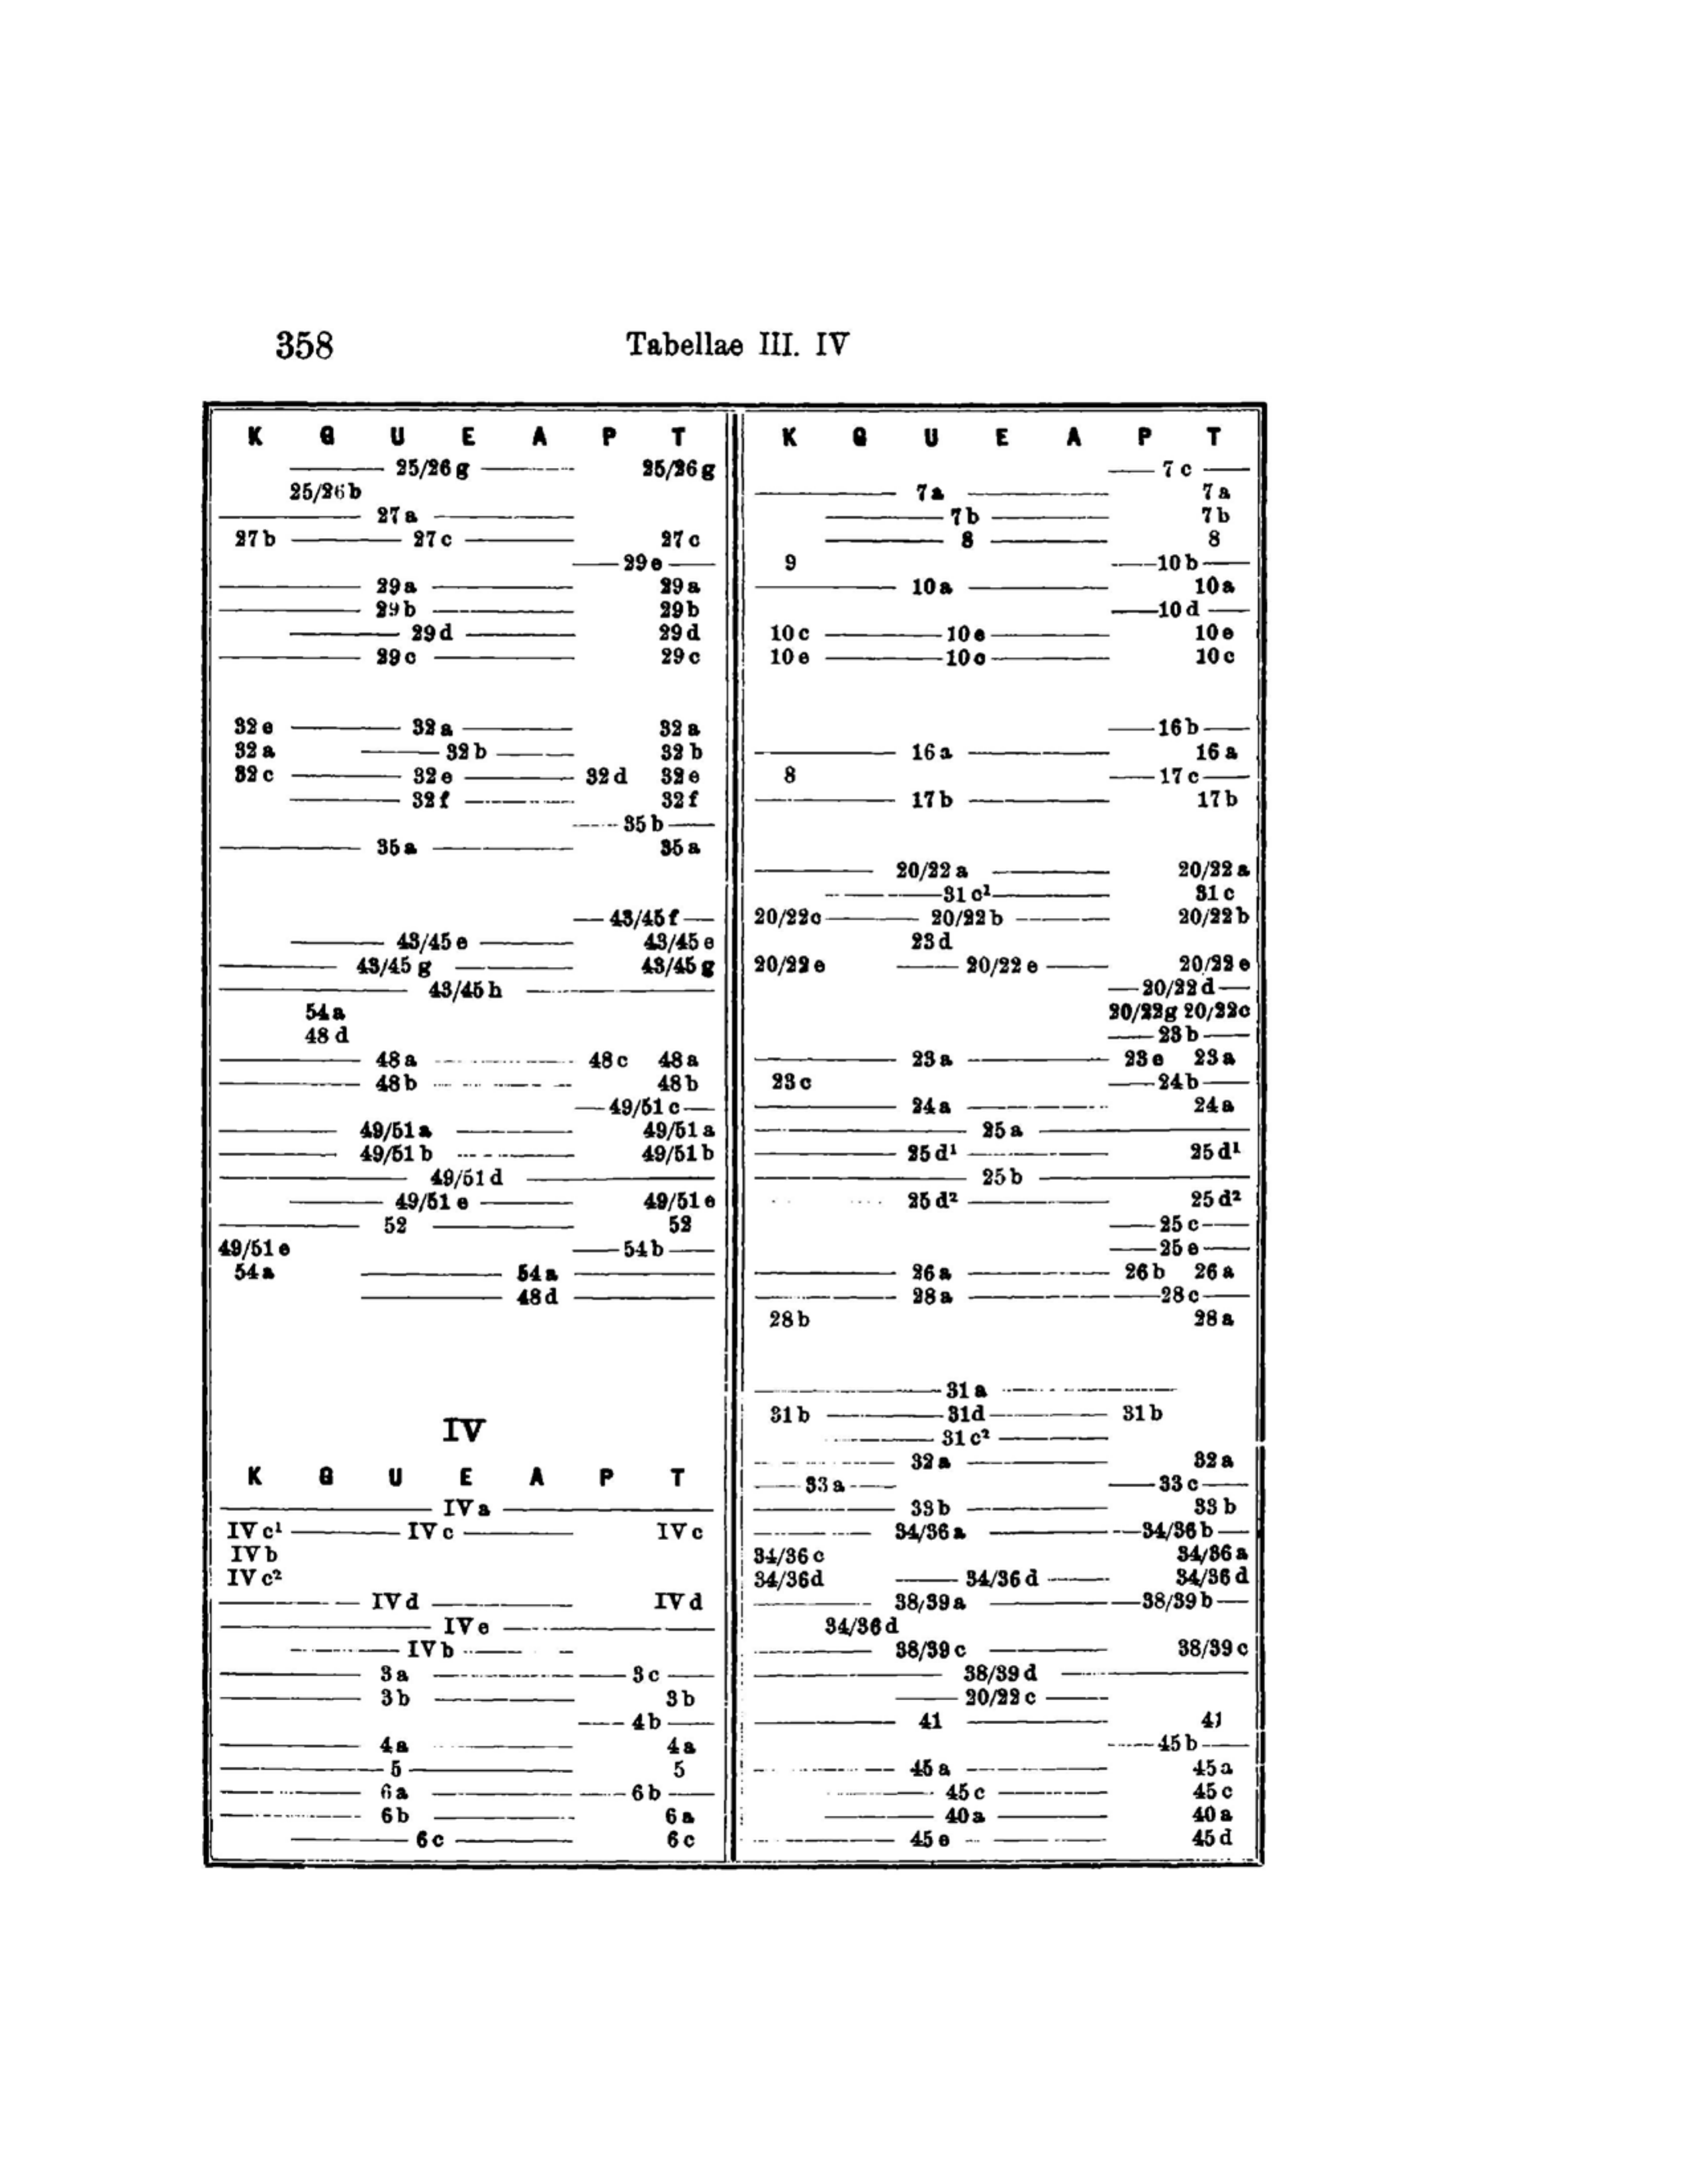 358 Tabellae III. IV
K G U E A P T
25/26 g 25/26 g
25/26 b
27 a
27 b 27 c 27 c
29 e
29 a 29 a
29 b 29 b
29 d 29 d
29 c 29 c
32 e 32 a 32 a
32 a 32 b 32 b
32 c 32 e 32 d 32 e
32 f 32 f
35 b
35 a 35 a
43/45 f
43/45 e 43/45 e
43/45 g 43/45 g
43/45 h
54 a
48 d
48 a 48 c 48 a
48 b 48 b
49/51 c
49/51 a 49/51 a
49/51 b 49/51 b
49/51 d
49/51 e 49/51 e
52 52
49/51 e 54 b
54 a 54 a
48 d
IV
K G U E A P T
IV a
IV c¹ IV c IV c
IV b
IV c²
IV d IV d
IV e
IV b
3 a 3 c
3 b 3 b
4 b
4 a 4 a
5 5
6 a 6 b
6 b 6 a
6 c 6 c
K G U E A P T
7 c
7 a 7 a
7 b 7 b
8 8
9 10 b
10 a 10 a
10 d
10 c 10 e 10 e
10 e 10 c 10 c
16 b
16 a 16 a
8 17 c
17 b 17 b
20/22 a 20/22 a
31 c¹ 31 c
20/22 c 20/22 b 20/22 b
23 d
20/22 e 20/22 e 20/22 e
20/22 d
20/22 g 20/22 c
23 b
23 a 23 e 23 a
23 c 24 b
24 a 24 a
25 a
25 d¹ 25 d¹
25 b
25 d² 25 d²
25 c
25 e
26 a 26 b 26 a
28 a 28 c
28 b 28 a
31 a
31 b 31 d 31 b
31 c²
32 a 32 a
33 a 33 c
33 b 33 b
34/36 a 34/36 b
34/36 c 34/36 a
34/36 d 34/36 d 34/36 d
38/39 a 38/39 b
34/36 d
38/39 c 38/39 c
38/39 d
20/22 c
41 41
45 b
45 a 45 a
45 c 45 c
40 a 40 a
45 e 45 d